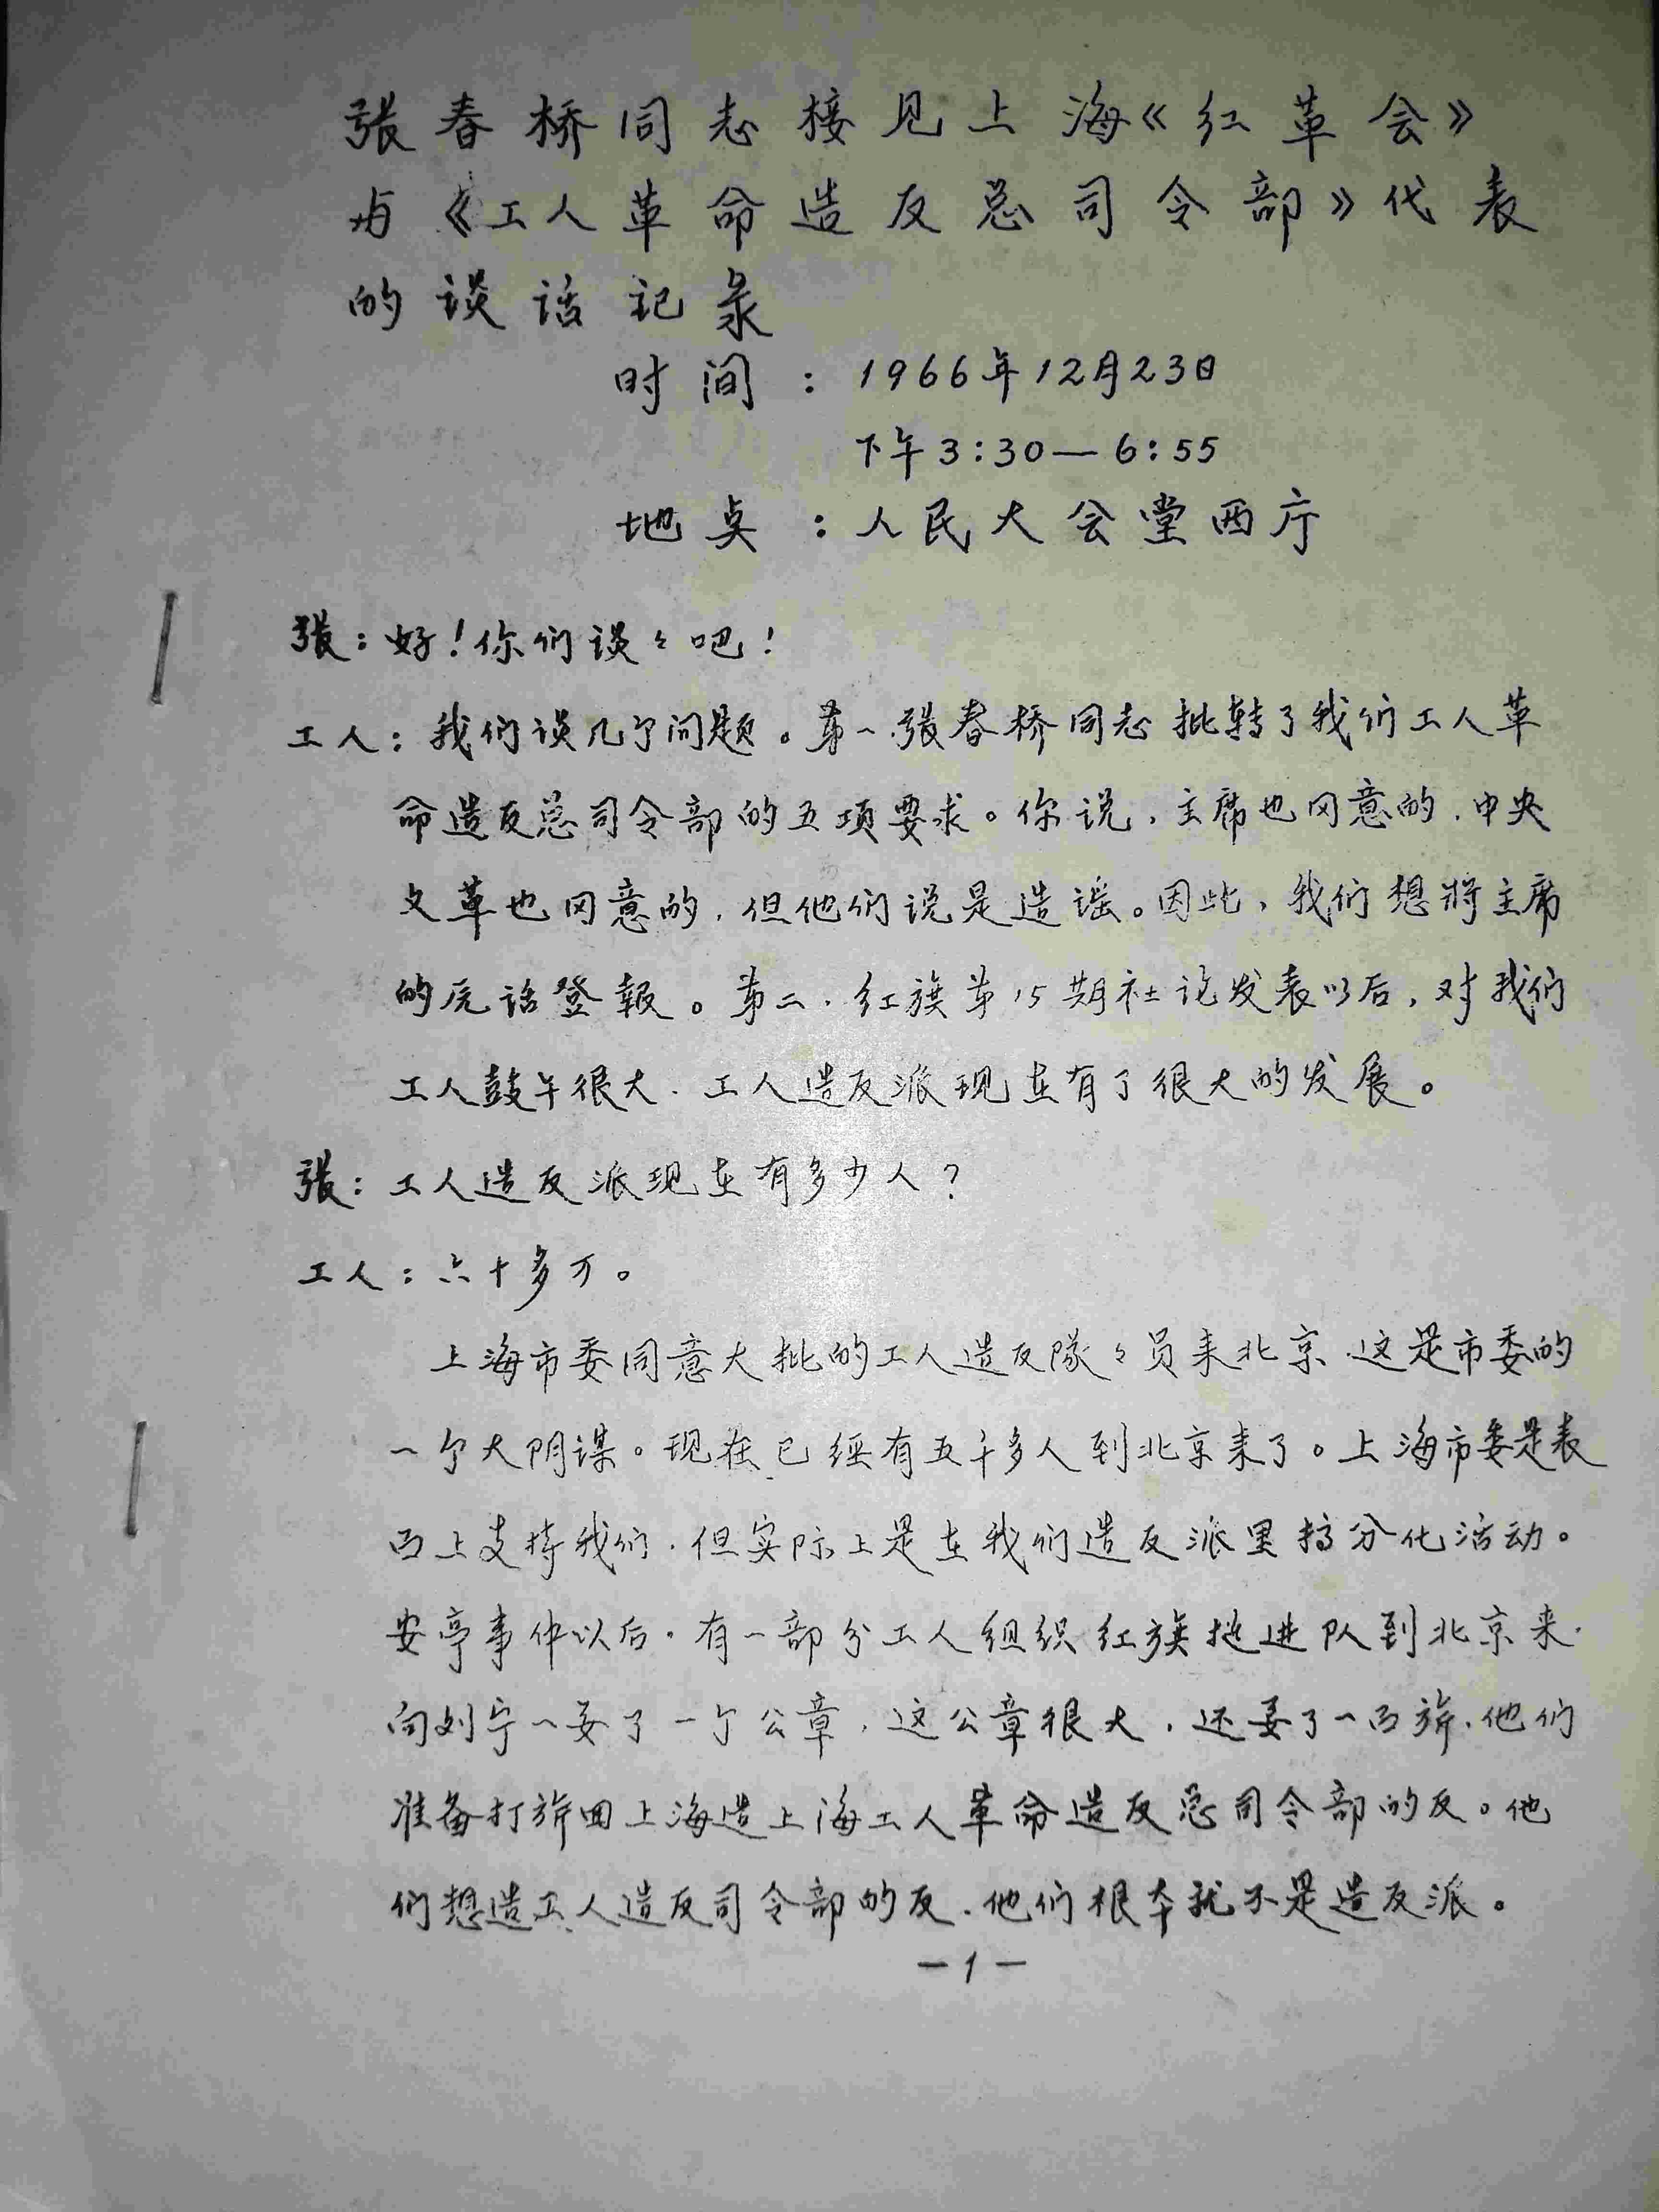 張春桥同志接见上海《红革会》
与《工人革命造反总司令部》代表
的谈话记录
时间：1966年12月23日
下午3:30—6:55
地点：人民大会堂西厅
張：好！你们谈々吧！
工人：我们谈几个问题。第一.張春桥同志批转了我们工人革
命造反总司令部的五项要求。你说，主席也同意的，中央
文革也同意的，但他们说是造谣。因此，我们想将主席
的原话登報。第二.红旗第15期社论发表以后，对我们
工人鼓午很大.工人造反派现在有了很大的发展。
張：工人造反派现在有多少人？
工人：六十多万。
上海市委同意大批的工人造反隊々员来北京.这是市委的
一个大阴谋。现在已经有五千多人到北京来了。上海市委是表
面上支持我们.但实际上是在我们造反派里搞分化活动。
安亭事件以后.有一部分工人组织红旗挺进队到北京来.
向刘宁一要了一个公章，这公章很大，还要了一面旂.他们
准备打旂回上海造上海工人革命造反总司令部的反。他
们想造工人造反司令部的反.他们根本就不是造反派。
—1—